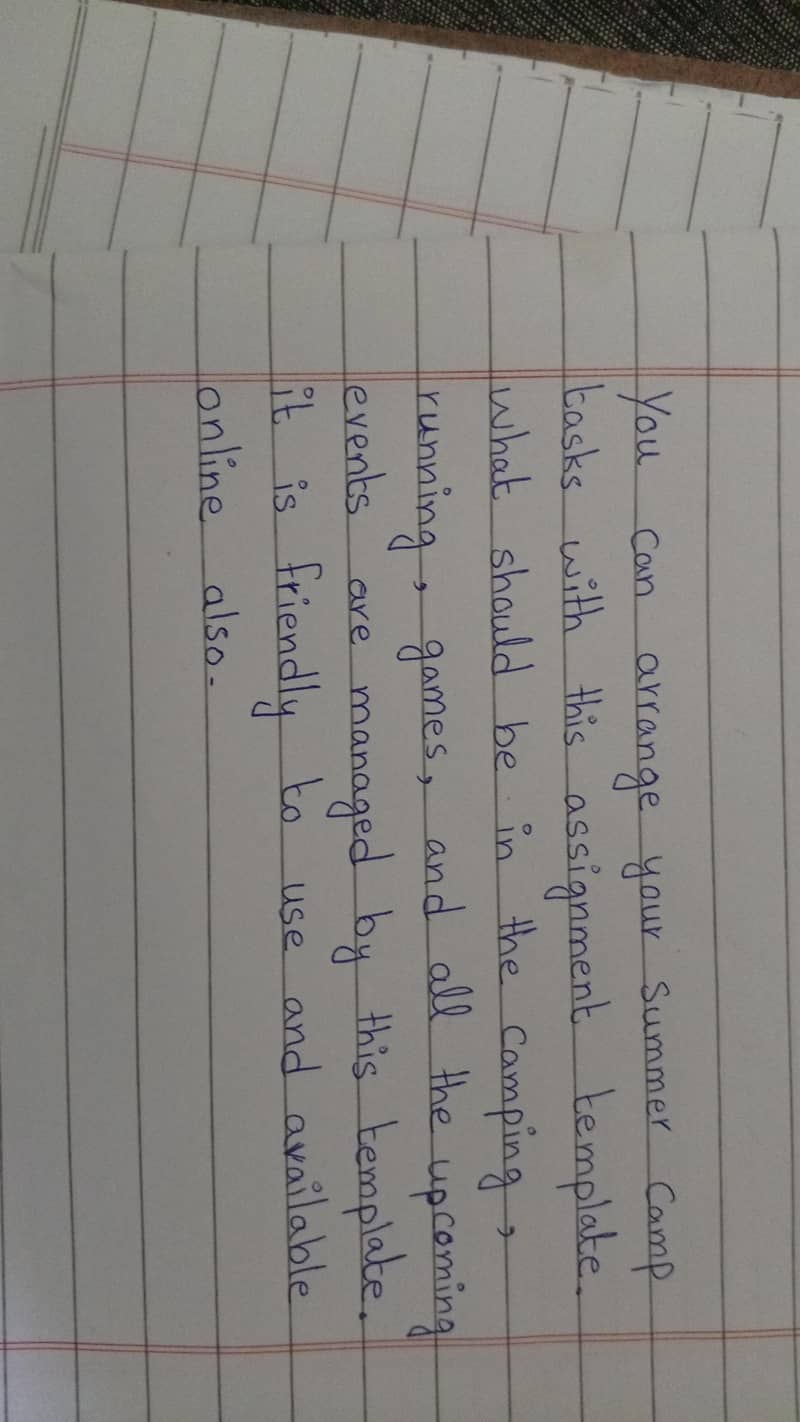 You can arrange your Summer Camp
tasks with this assignment template.
what should be in the camping,
running, games, and all the upcoming
events are managed by this template.
it is friendly to use and available
online also.